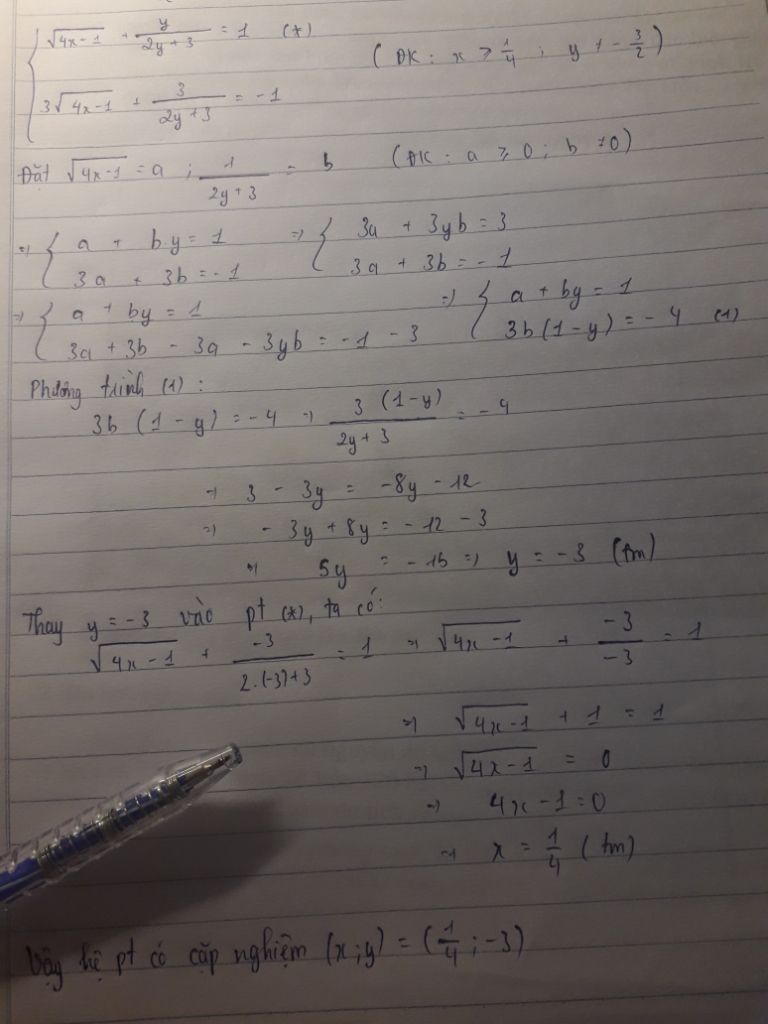 √4x-1 + y/2y+3 = 1 (*)
(ĐK: x ≥ 1/4 ; y ≠ -3/2)
3√4x-1 + 3/2y+3 = -1
Đặt √4x-1 = a ; 1/2y+3 = b (ĐK: a ≥ 0 ; b ≠ 0)
=> { a + by = 1 => { 3a + 3yb = 3
3a + 3b = -1 3a + 3b = -1
=> { a + by = 1 => { a + by = 1
3a + 3b - 3a - 3yb = -1 - 3 3b(1-y) = -4 (1)
Phương trình (1):
3b (1-y) = -4 => 3(1-y)/2y+3 = -4
=> 3 - 3y = -8y - 12
=> -3y + 8y = -12 - 3
=> 5y = -15 => y = -3 (tm)
Thay y = -3 vào pt (*), ta có:
√4x-1 + -3/2.(-3)+3 = 1 => √4x-1 + -3/-3 = 1
=> √4x-1 + 1 = 1
=> √4x-1 = 0
=> 4x-1=0
=> x = 1/4 (tm)
Vậy hệ pt có cặp nghiệm (x;y) = (1/4 ; -3)